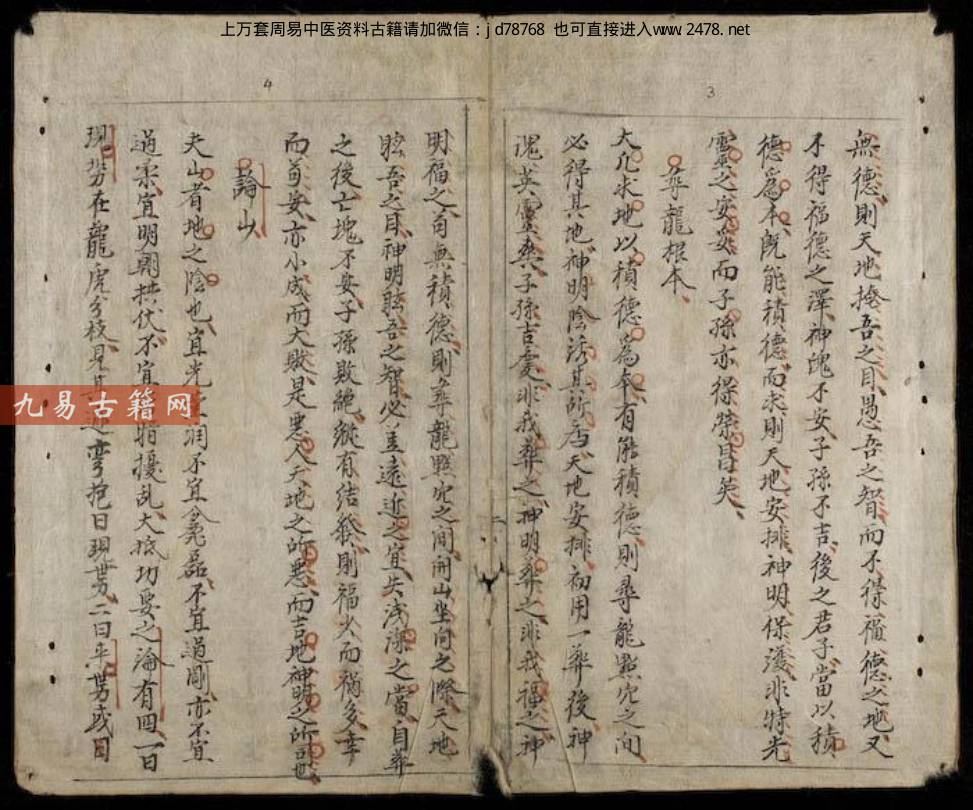 上万套周易中医资料古籍请加微信：jd78768 也可直接进入www.2478.net
3
無德則天地掩吾之目愚吾之智而不得福德之地又
不得福德之澤神魄不安子孫不吉後之君子當以積
德為本既能積德而求則天地安排神明保護非特光
靈之安妥而子孫亦得榮昌矣
尋龍根本
大凡求地以積德為本有能積德則尋龍點穴之间
必得其地神明陰誘其所居天地安排初用一葬後神
魂英靈爽子孫吉慶非我葬之神明葬之非我福之神
4
明福之自無積德則尋龍點穴之間開山坐向之際天地
眩吾之目神明眩吾之智必豈遠近之宜失浅深之當自葬
之後亡塊不安子孫敗絕縱有結發則福少而禍多幸
而苟安亦小成而大敗是惡人天地之所惡而吉地神明之所司也
論山
夫山者地之陰也宜光潤不宜磊不宜過剛亦不宜
過柔宜明朝拱伏不宜擾乱大抵功要之論有四一曰
現势在龍虎分枝見其弯抱曰現势二曰平势或曰
九易古籍网